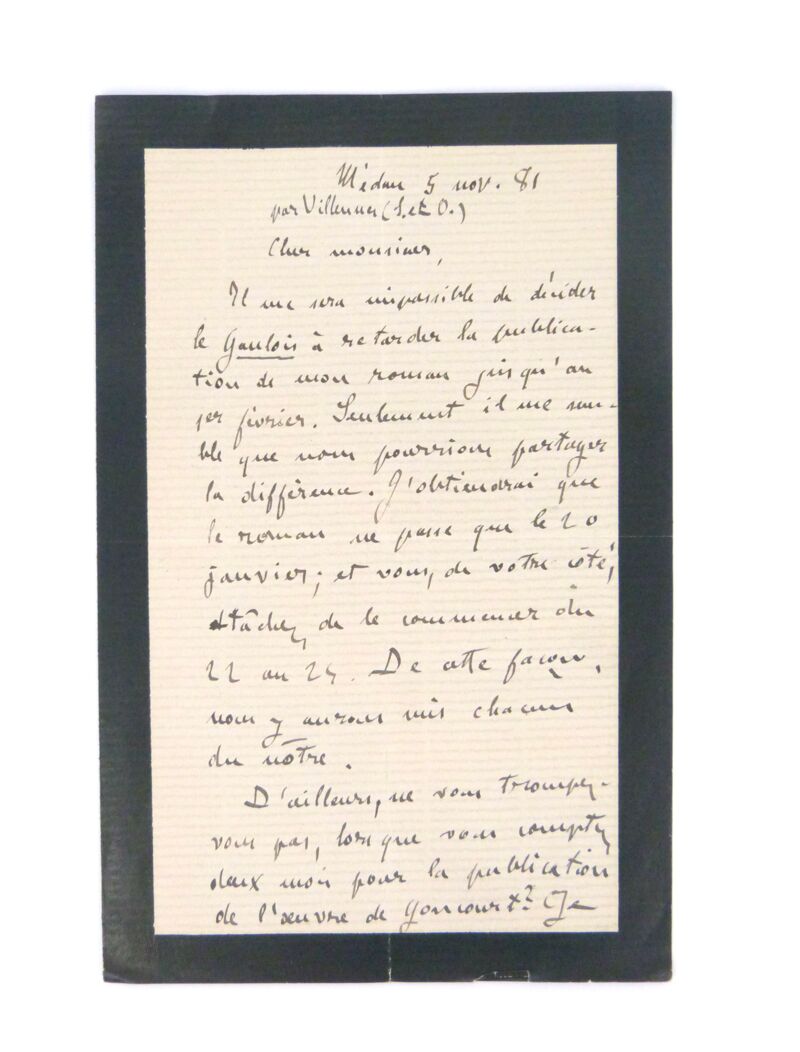 Médan 5 nov. 81
par Villennes (S. et O.)
Cher monsieur,
Il me sera impossible de décider
le Gaulois à retarder la publica-
tion de mon roman jusqu'au
1er février. Seulement il me sem-
ble que nous pourrions partager
la différence. J'obtiendrai que
le roman ne passe que le 20
janvier; et vous, de votre côté,
tâchez de le commencer du
22 au 25. De cette façon,
nous y aurons mis chacun
du nôtre.
D'ailleurs, ne vous trompez-
vous pas, lorsque vous comptez
deux mois pour la publication
de l'œuvre de Goncourt? Je